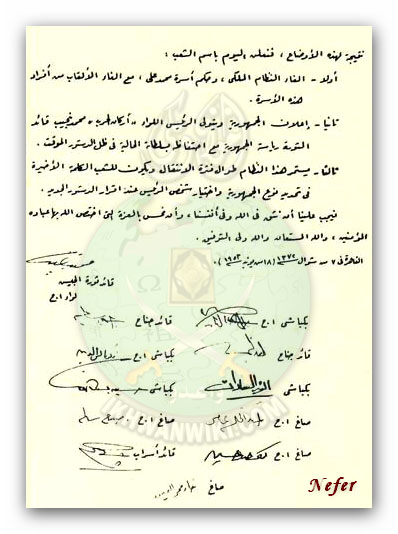 نتيجة لهذه الأوضاع ، فنعلن اليوم باسم الشعب :
أولا - الغاء النظام الملكى ، وحكم أسرة محمد على ، مع الغاء الألقاب من أفراد
هذه الأسرة .
ثانيا - إعلان الجمهورية ويتولى الرئيس اللواء "أركان حرب" محمد نجيب قائد
الثورة رياسة الجمهورية مع احتفاظه بسلطاته الحالية فى ظل الدستور المؤقت .
ثالثا - يستمر هذا النظام طوال فترة الانتقال ويكون للشعب الكلمة الأخيرة
فى تحديد نوع الجمهورية واختيار شخص الرئيس عند اقرار الدستور الجديد .
فيجب علينا أن نثق فى الله وفى أنفسنا ، وأن نحس بالعزة التى اختص الله بها عباده
المؤمنين ، والله المستعان والله ولى التوفيق .
القاهرة فى ٧ من شوال (١٨ من يونيه ١٩٥٣) .
قائد ثورة الجيش
لواء أ.ح
بكباشى أ.ح
قائد جناح
قائد جناح
بكباشى أ.ح
بكباشى أنور السادات
بكباشى
صاغ أ.ح
صاغ أ.ح
صاغ أ.ح
قائد أسراب
صاغ
IKHWANWIKI.COM
Nefer